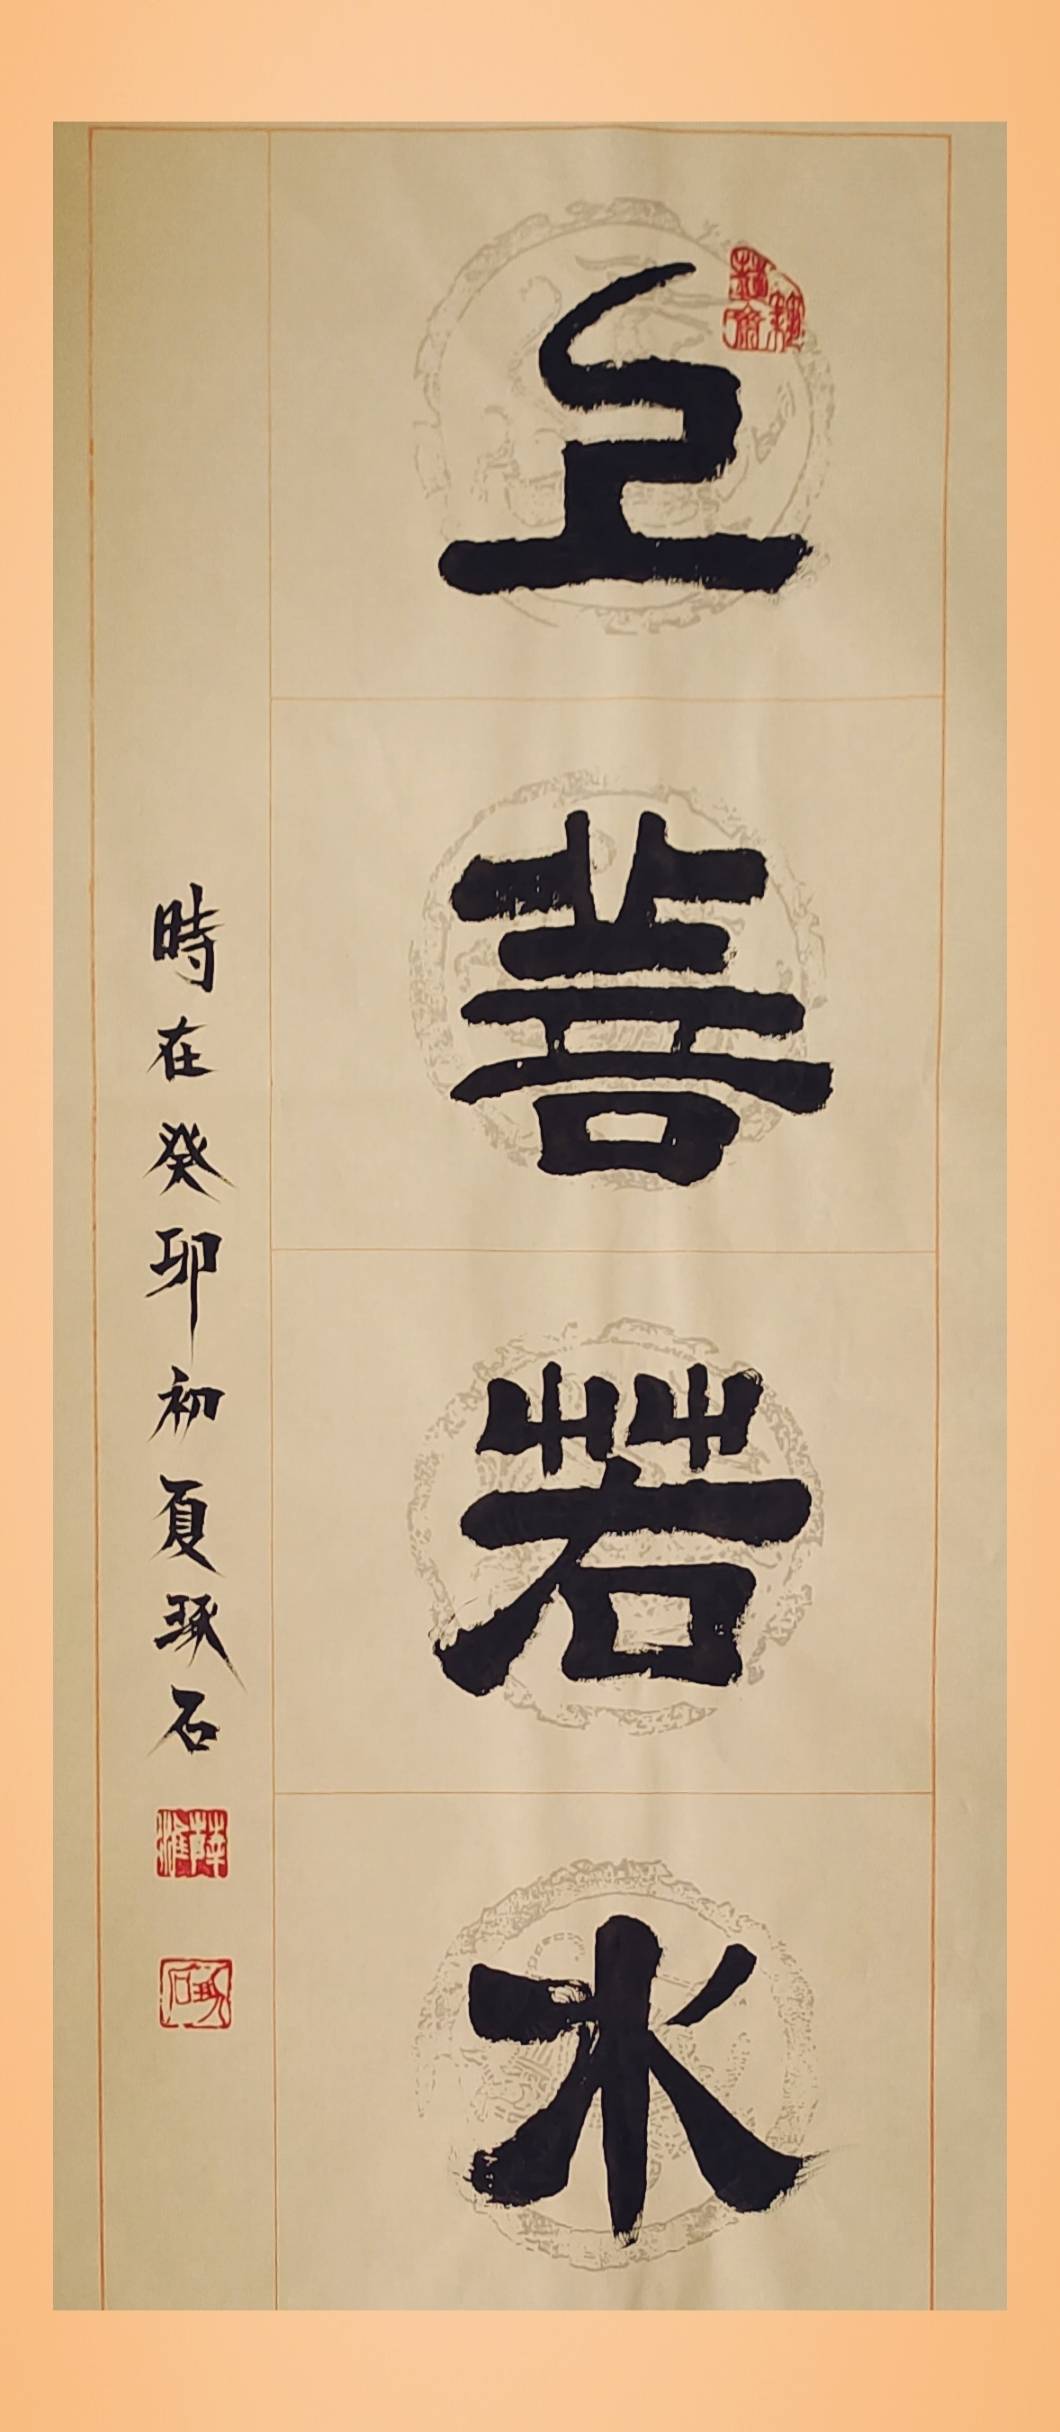 上善若水
時在癸卯初夏琢石